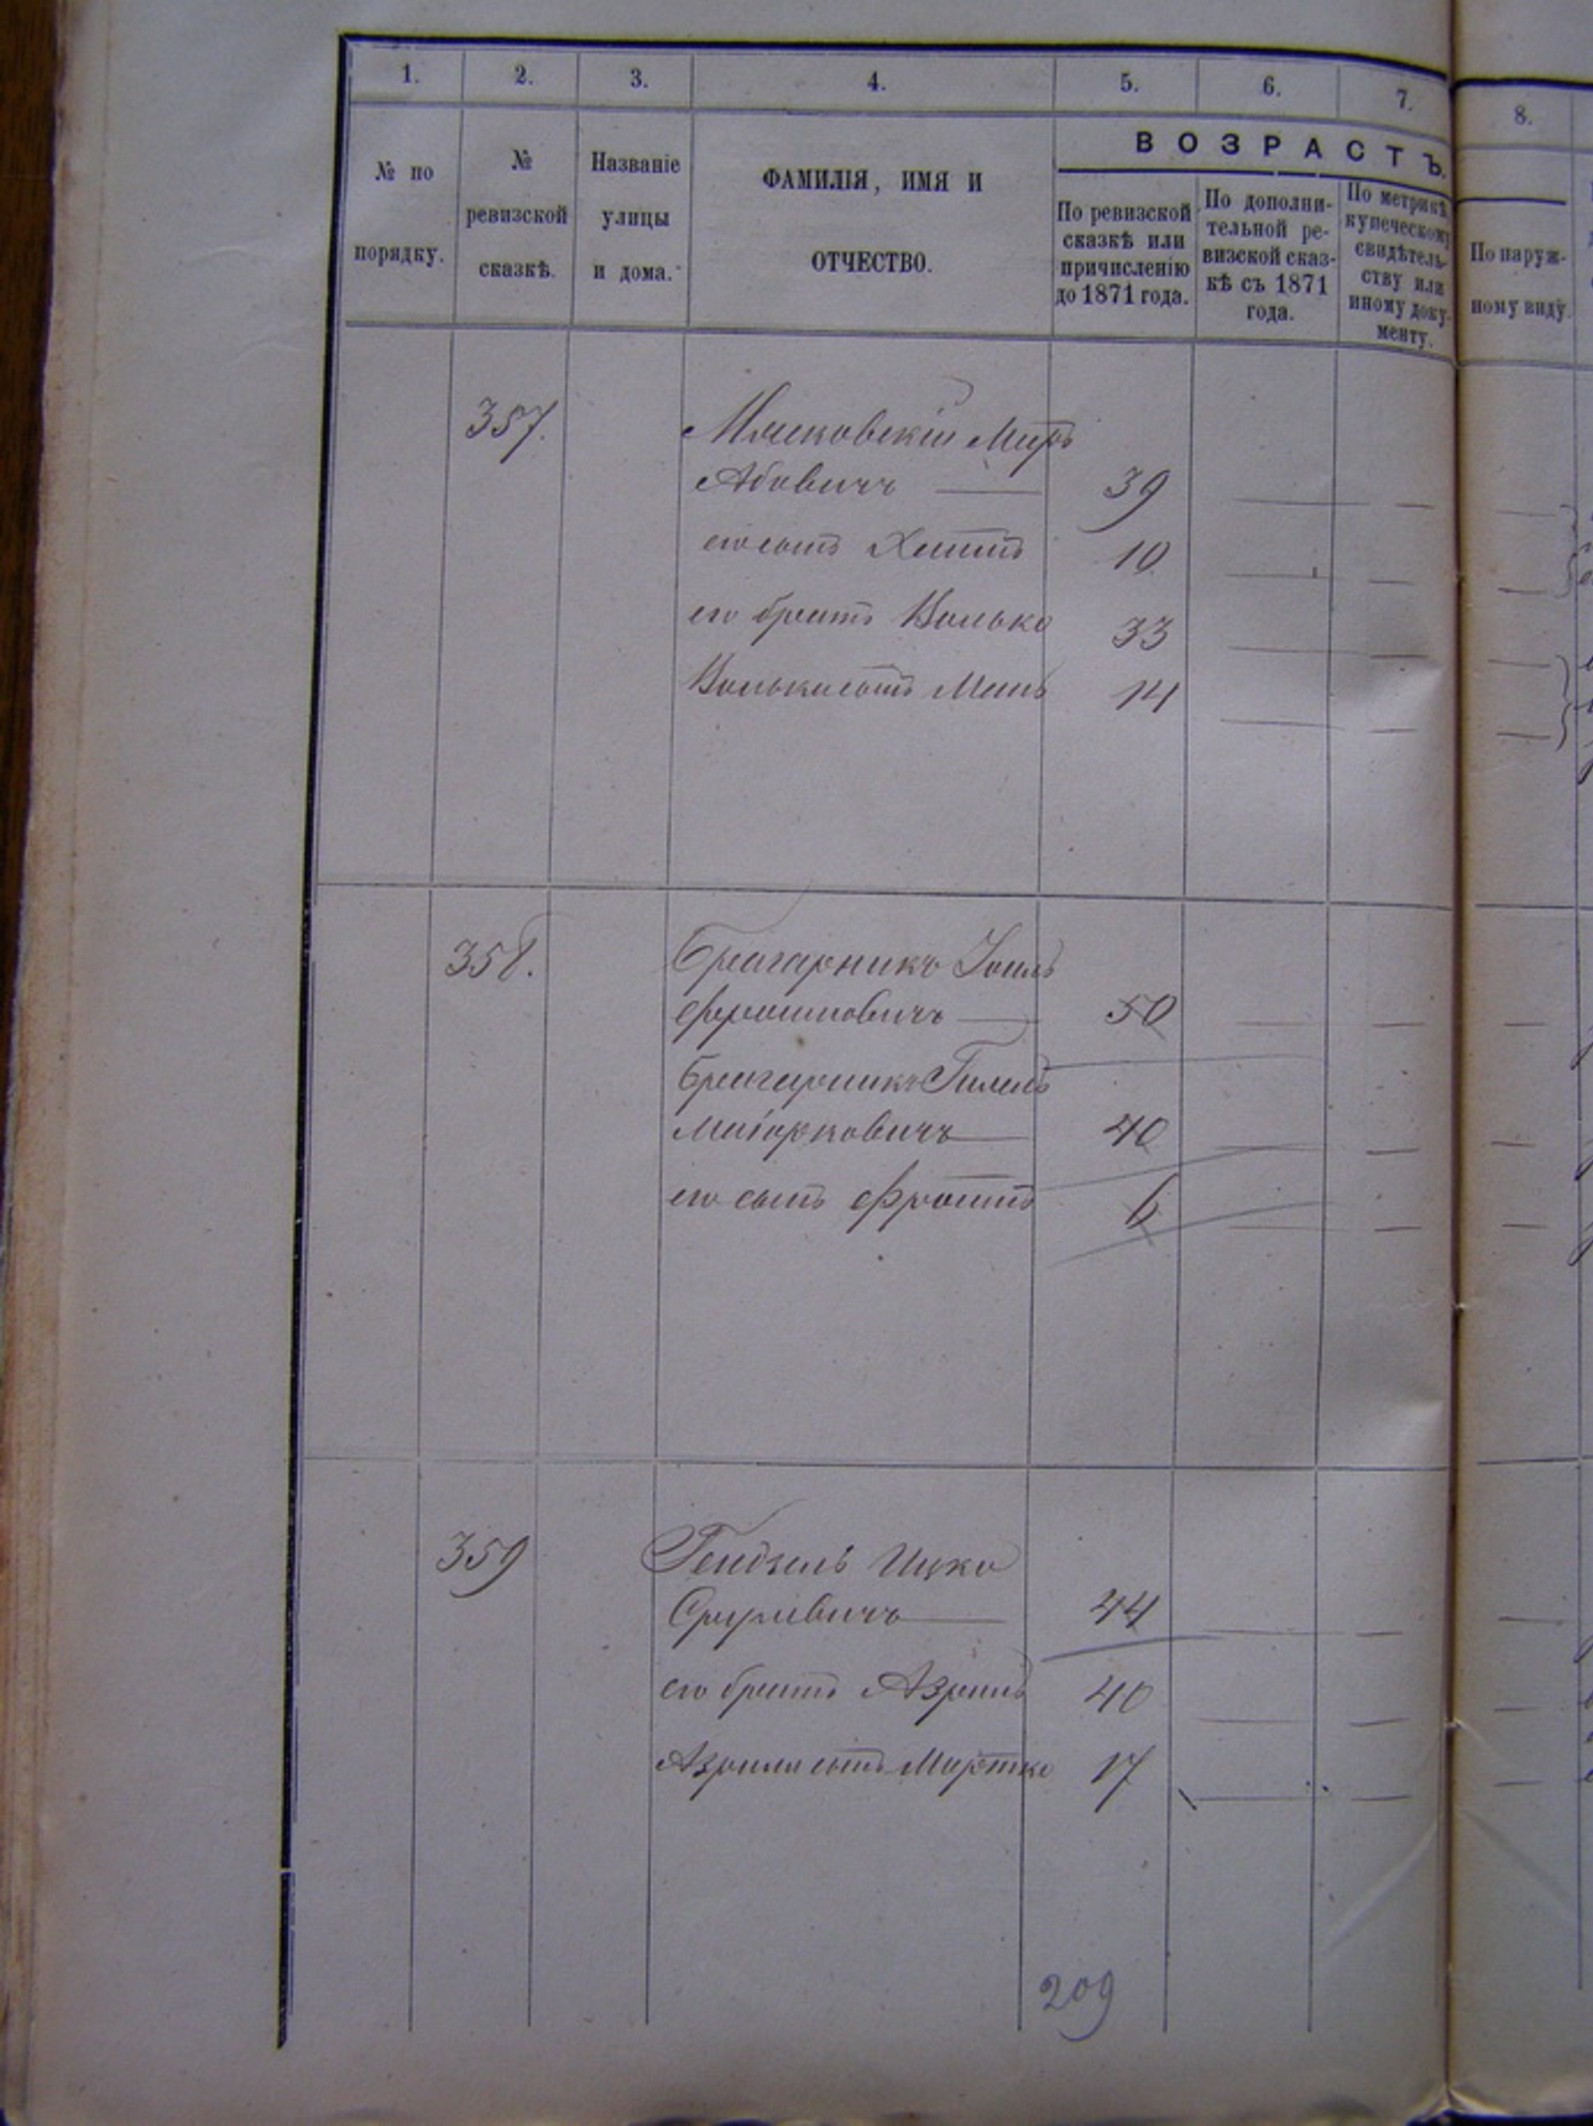 1. 2. 3. 4. 5. 6. 7. 8.
ВОЗРАСТЪ.
№ по порядку.
№ ревизской сказкѣ.
Названіе улицы и дома.
ФАМИЛІЯ, ИМЯ И ОТЧЕСТВО.
По ревизской сказкѣ или причисленію до 1871 года.
По дополнительной ревизской сказкѣ съ 1871 года.
По метрикѣ, купеческому свидѣтельству или иному документу.
По наружному виду.
357.
Абовичъ — 39
его сынъ 10
его братъ Волько 33
Волька сынъ 14
358.
Брагарникъ
Фроимовичъ — 50
Брагарникъ Гилель
Маіорковичъ — 40
его сынъ Фроимъ 6
359
Гендзель Ицко
Сруливичъ — 44
его братъ Азрилъ 40
Азрила сынъ 17
209